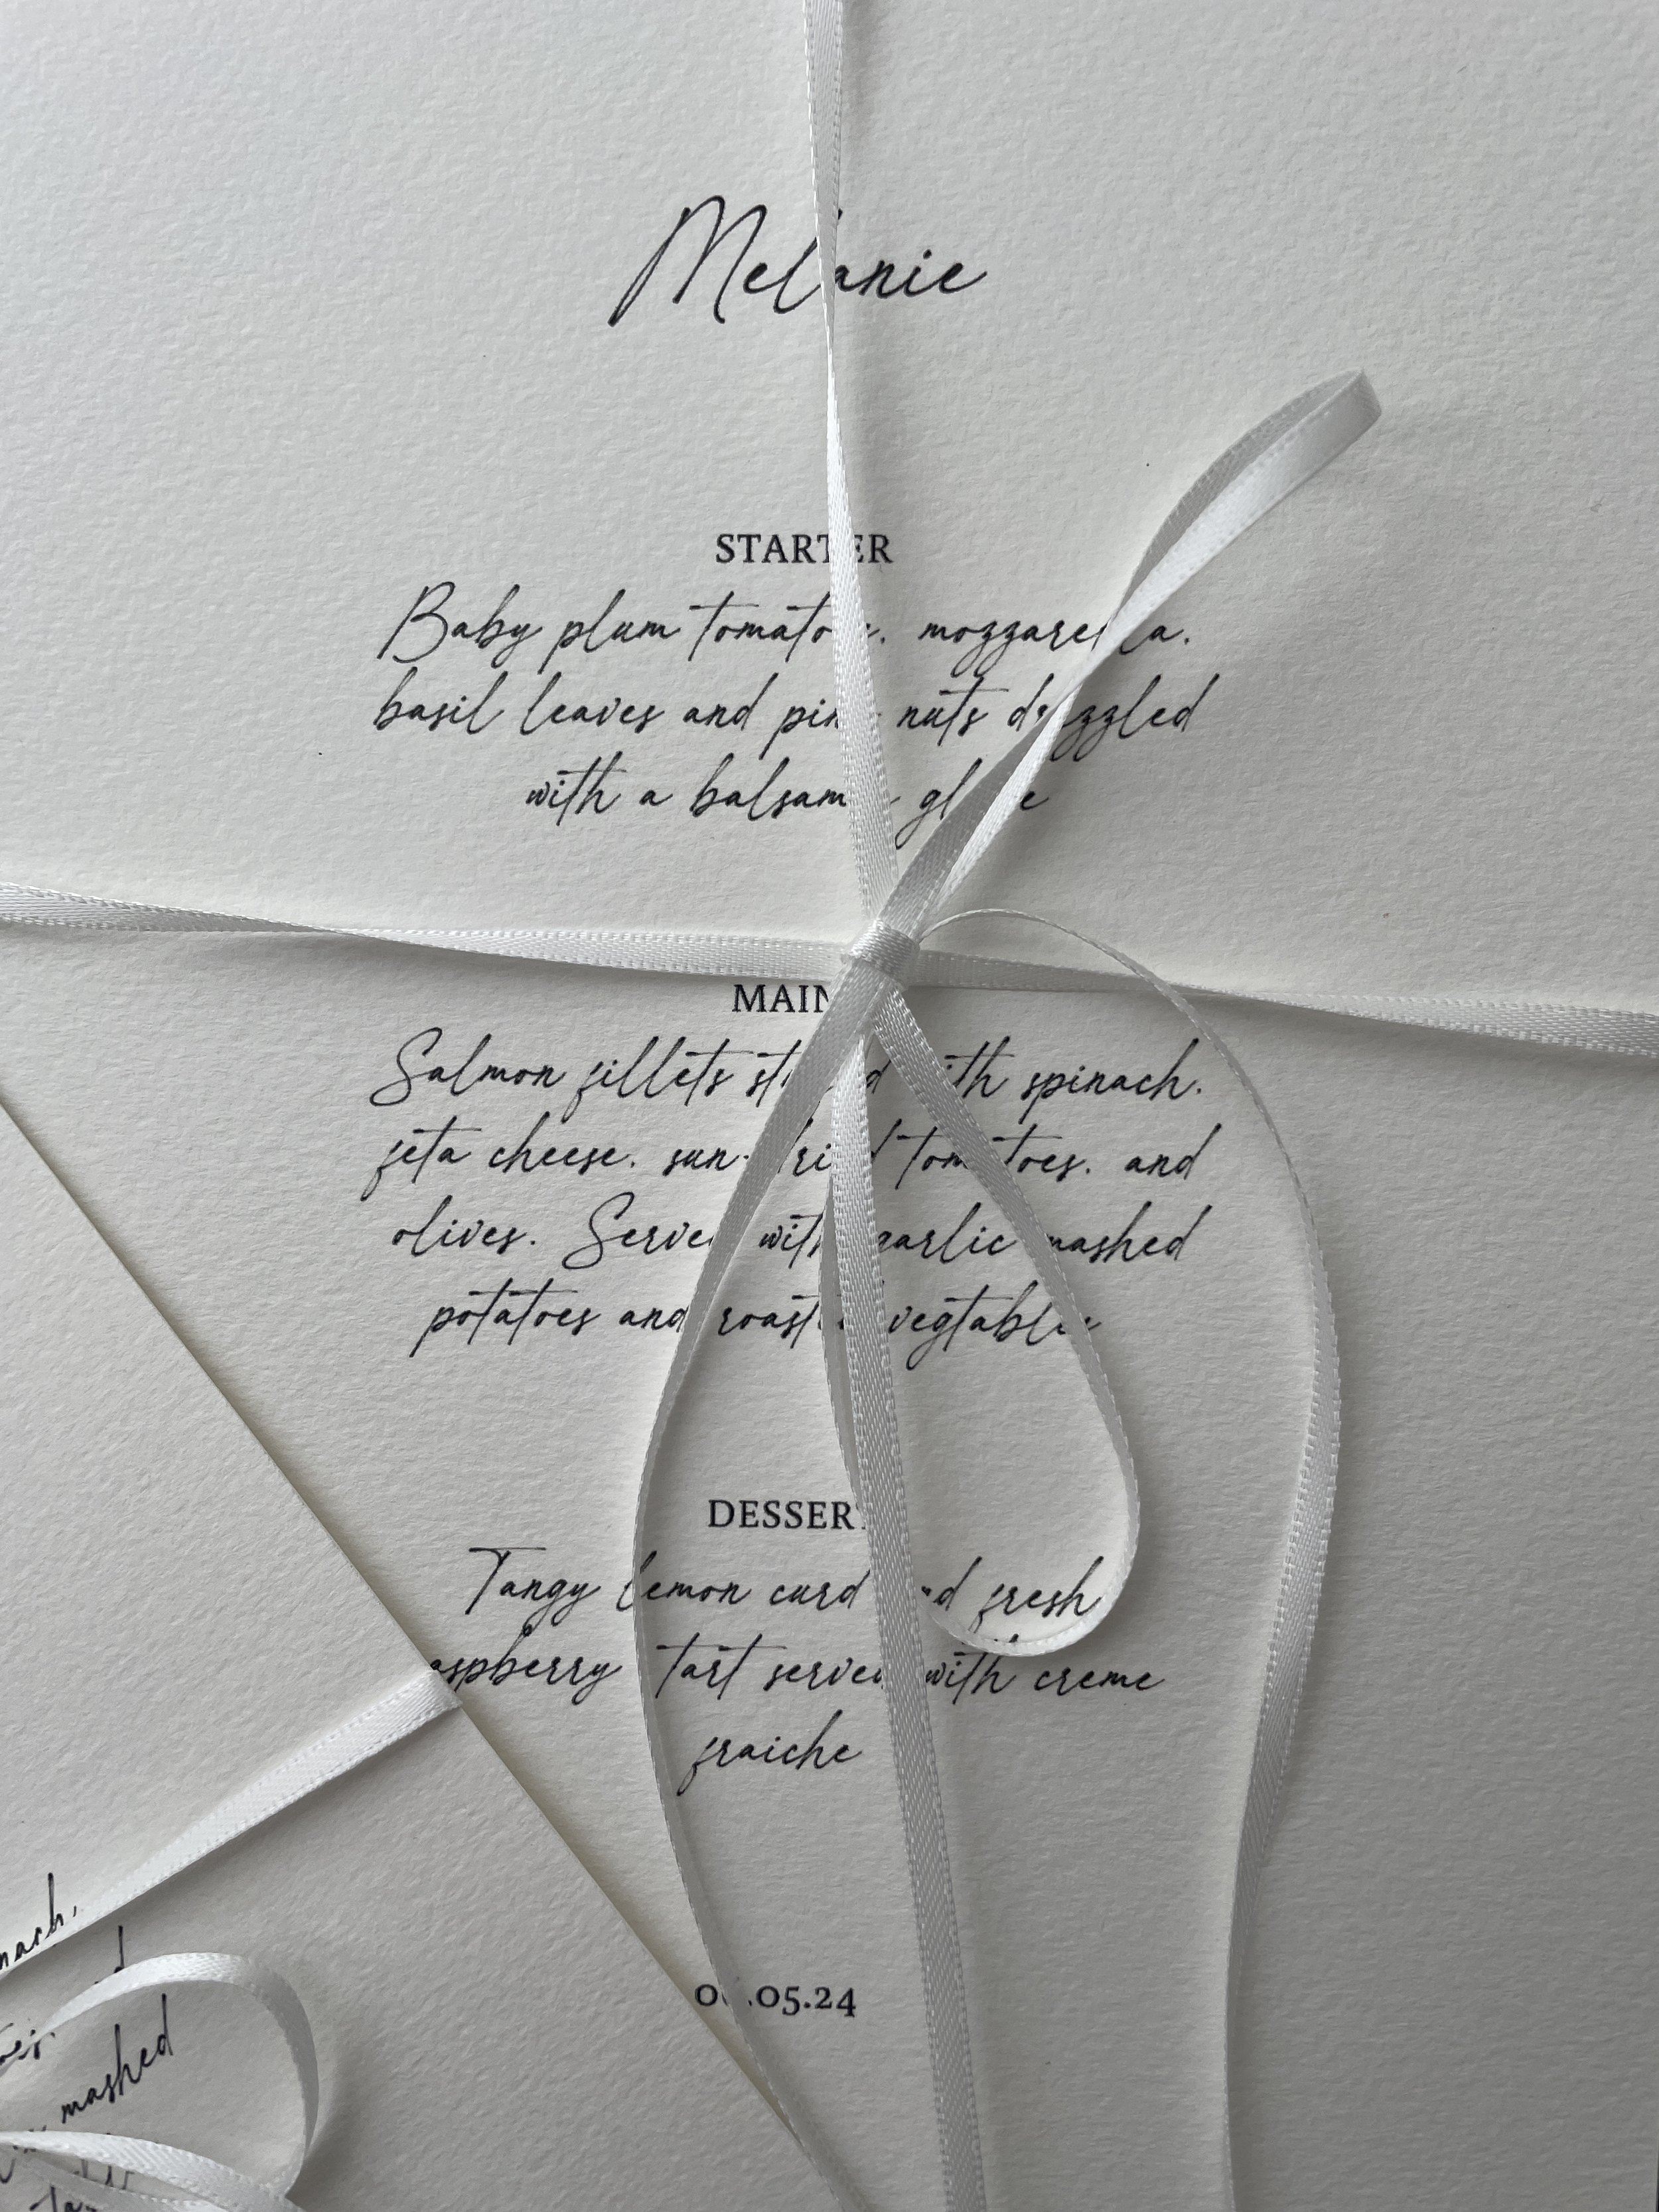 Melanie
STARTER
Baby plum tomatoes, mozzarella,
basil leaves and pine nuts drizzled
with a balsamic glaze
MAIN
Salmon fillets stuffed with spinach,
feta cheese, sun-dried tomatoes, and
olives. Served with garlic mashed
potatoes and roasted vegtables
DESSERT
Tangy lemon curd and fresh
raspberry tart served with creme
fraiche
.05.24
mashed